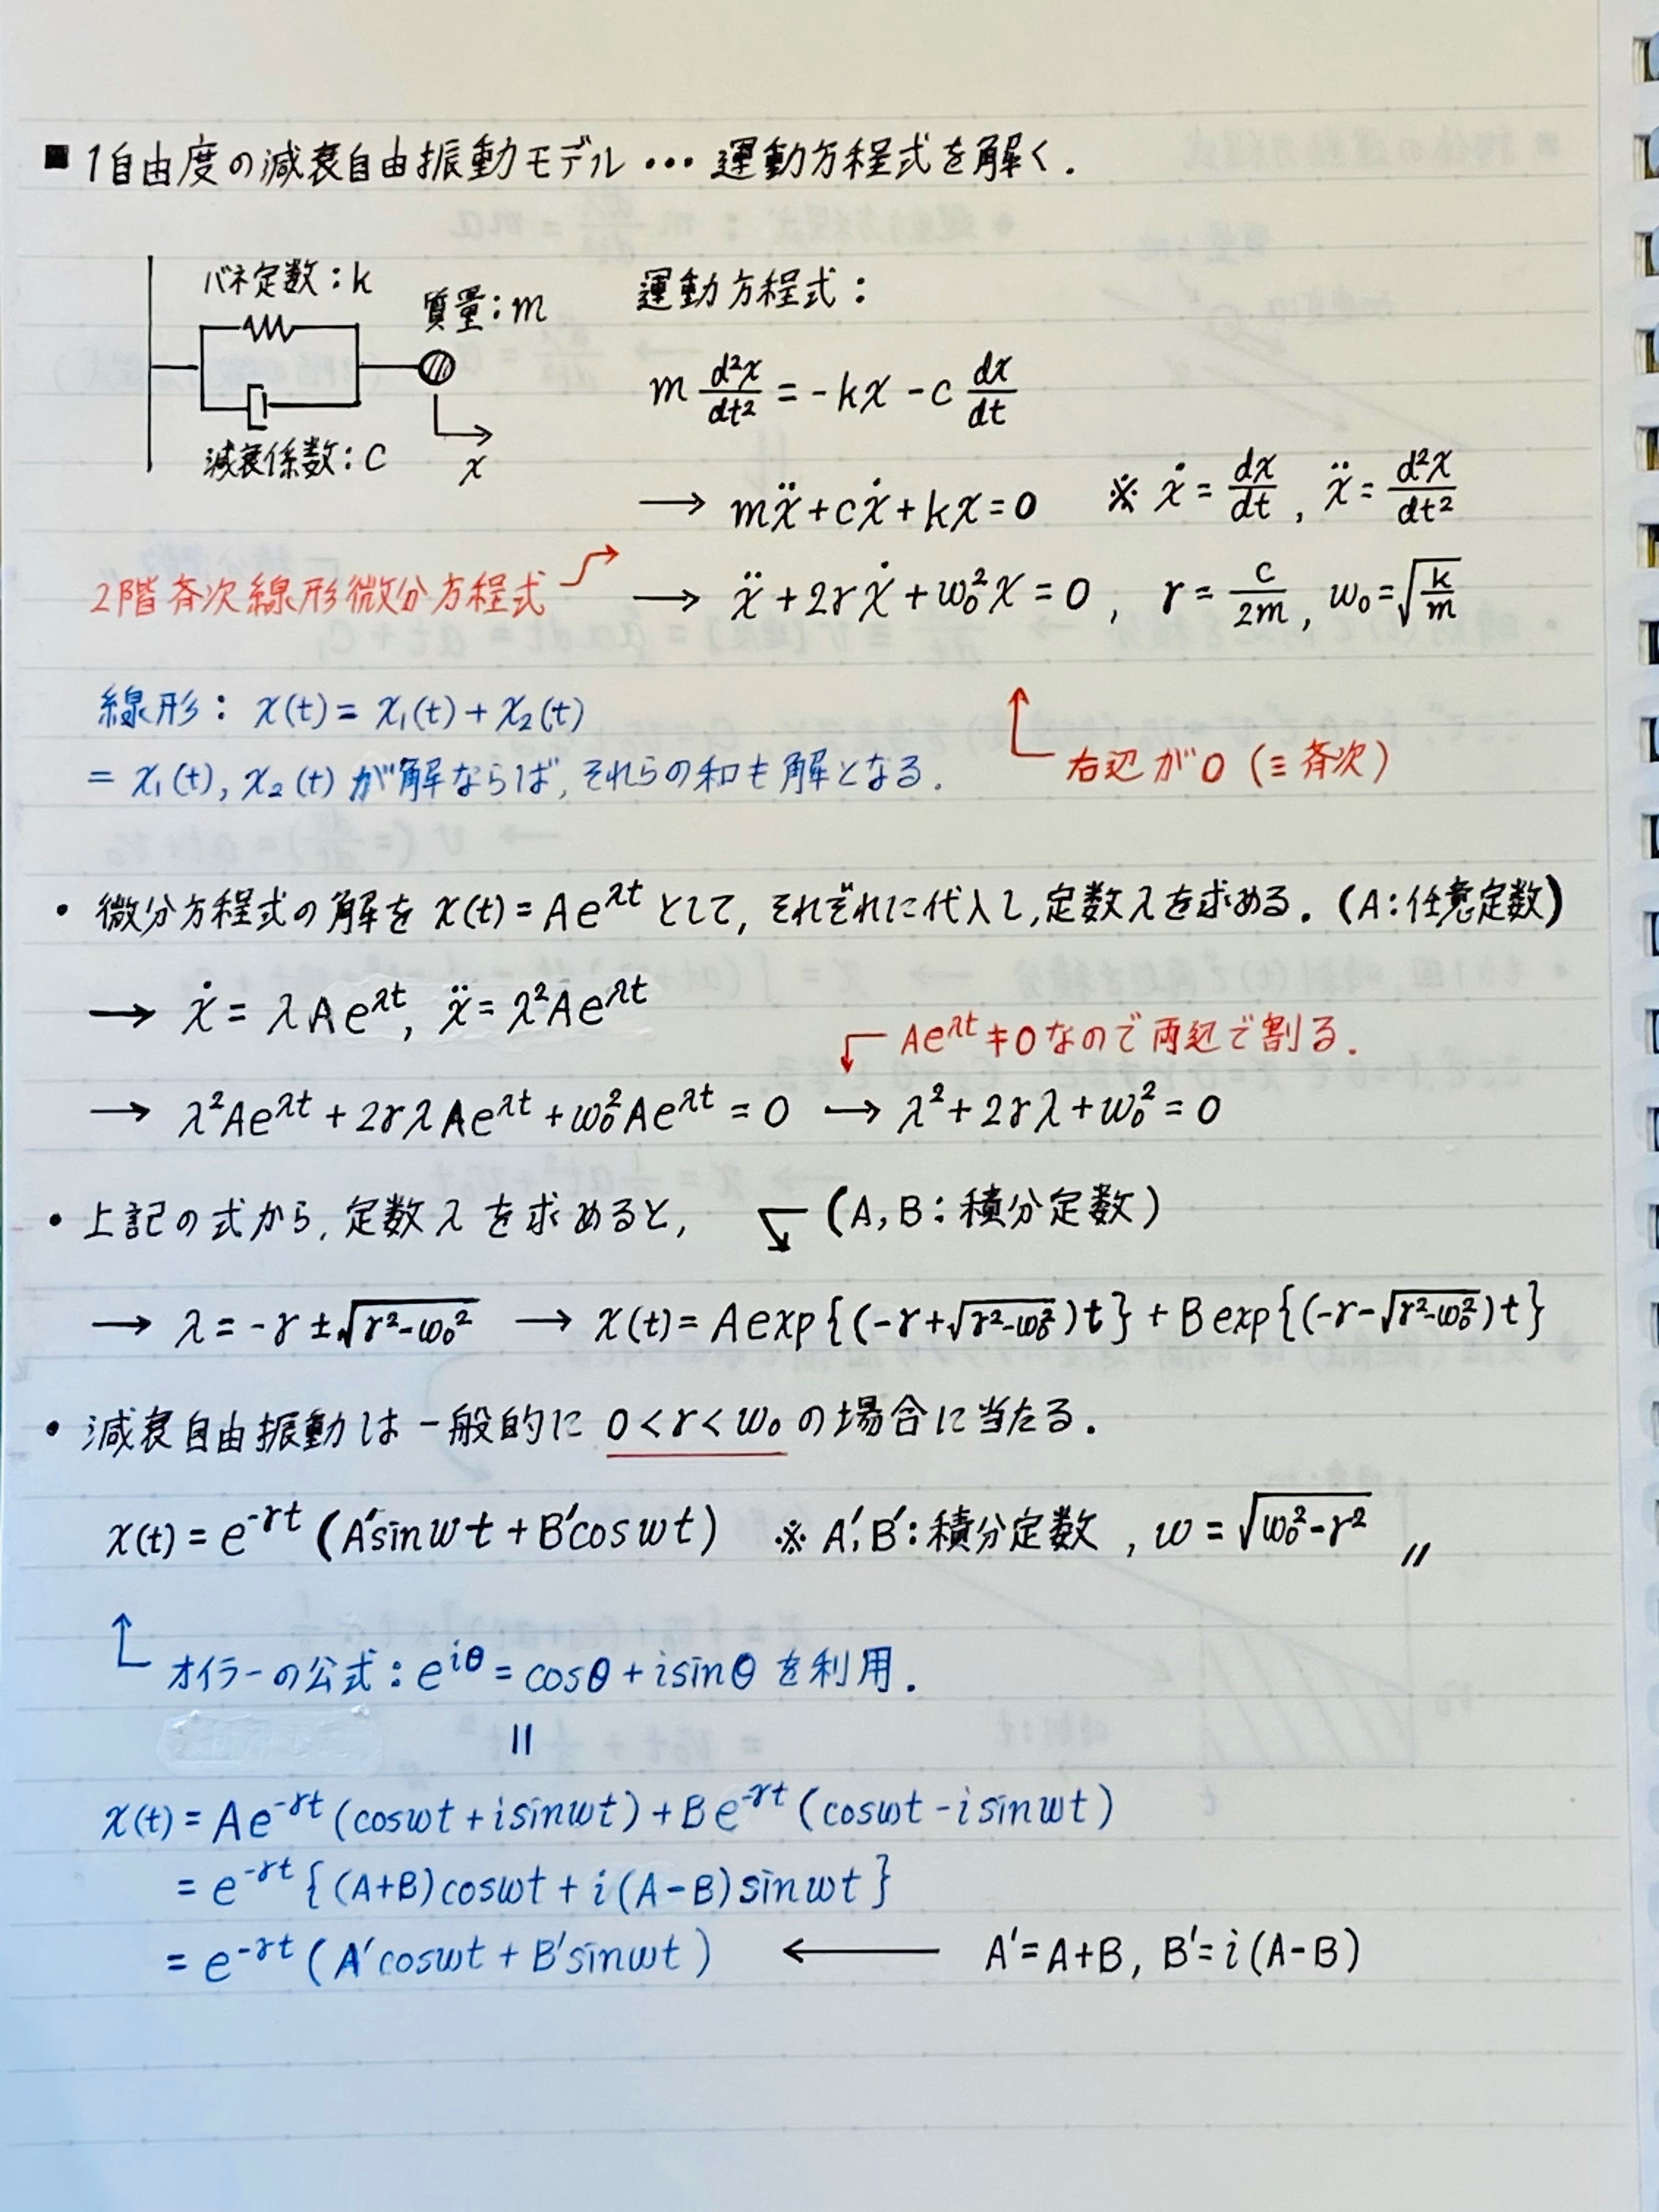 ■ 1自由度の減衰自由振動モデル … 運動方程式を解く.
バネ定数:k
質量:m
減衰係数:c
x
運動方程式:
m d²x/dt² = -kx - c dx/dt
→ mẍ+cẋ+kx=0 ※ ẋ = dx/dt, ẍ = d²x/dt²
2階斉次線形微分方程式
→ ẍ+2γẋ+w₀²x=0, γ = c/2m, w₀=√(k/m)
線形: x(t) = x₁(t) + x₂(t)
= x₁(t), x₂(t) が解ならば,それらの和も解となる.
右辺が0 (≡斉次)
• 微分方程式の解を x(t) = Ae^λt として, それぞれに代入し,定数λを求める. (A:任意定数)
→ ẋ = λAe^λt, ẍ = λ²Ae^λt
Ae^λt ≠ 0 なので両辺で割る.
→ λ²Ae^λt + 2γλAe^λt + w₀²Ae^λt = 0 → λ²+2γλ+w₀²=0
• 上記の式から, 定数λを求めると, (A,B:積分定数)
→ λ = -γ ± √(γ²-w₀²) → x(t) = A exp{(-γ+√(γ²-w₀²))t} + B exp{(-γ-√(γ²-w₀²))t}
• 減衰自由振動は一般的に 0<γ<w₀ の場合に当たる.
x(t) = e^-γt (A'sinwt + B'coswt) ※ A',B':積分定数, w = √(w₀²-γ²) 〃
オイラーの公式: e^iθ = cosθ + isinθ を利用.
॥
x(t) = Ae^-γt (coswt + isinwt) + Be^-γt (coswt - isinwt)
= e^-γt {(A+B)coswt + i(A-B)sinwt}
= e^-γt (A'coswt + B'sinwt) ← A'=A+B, B'=i(A-B)